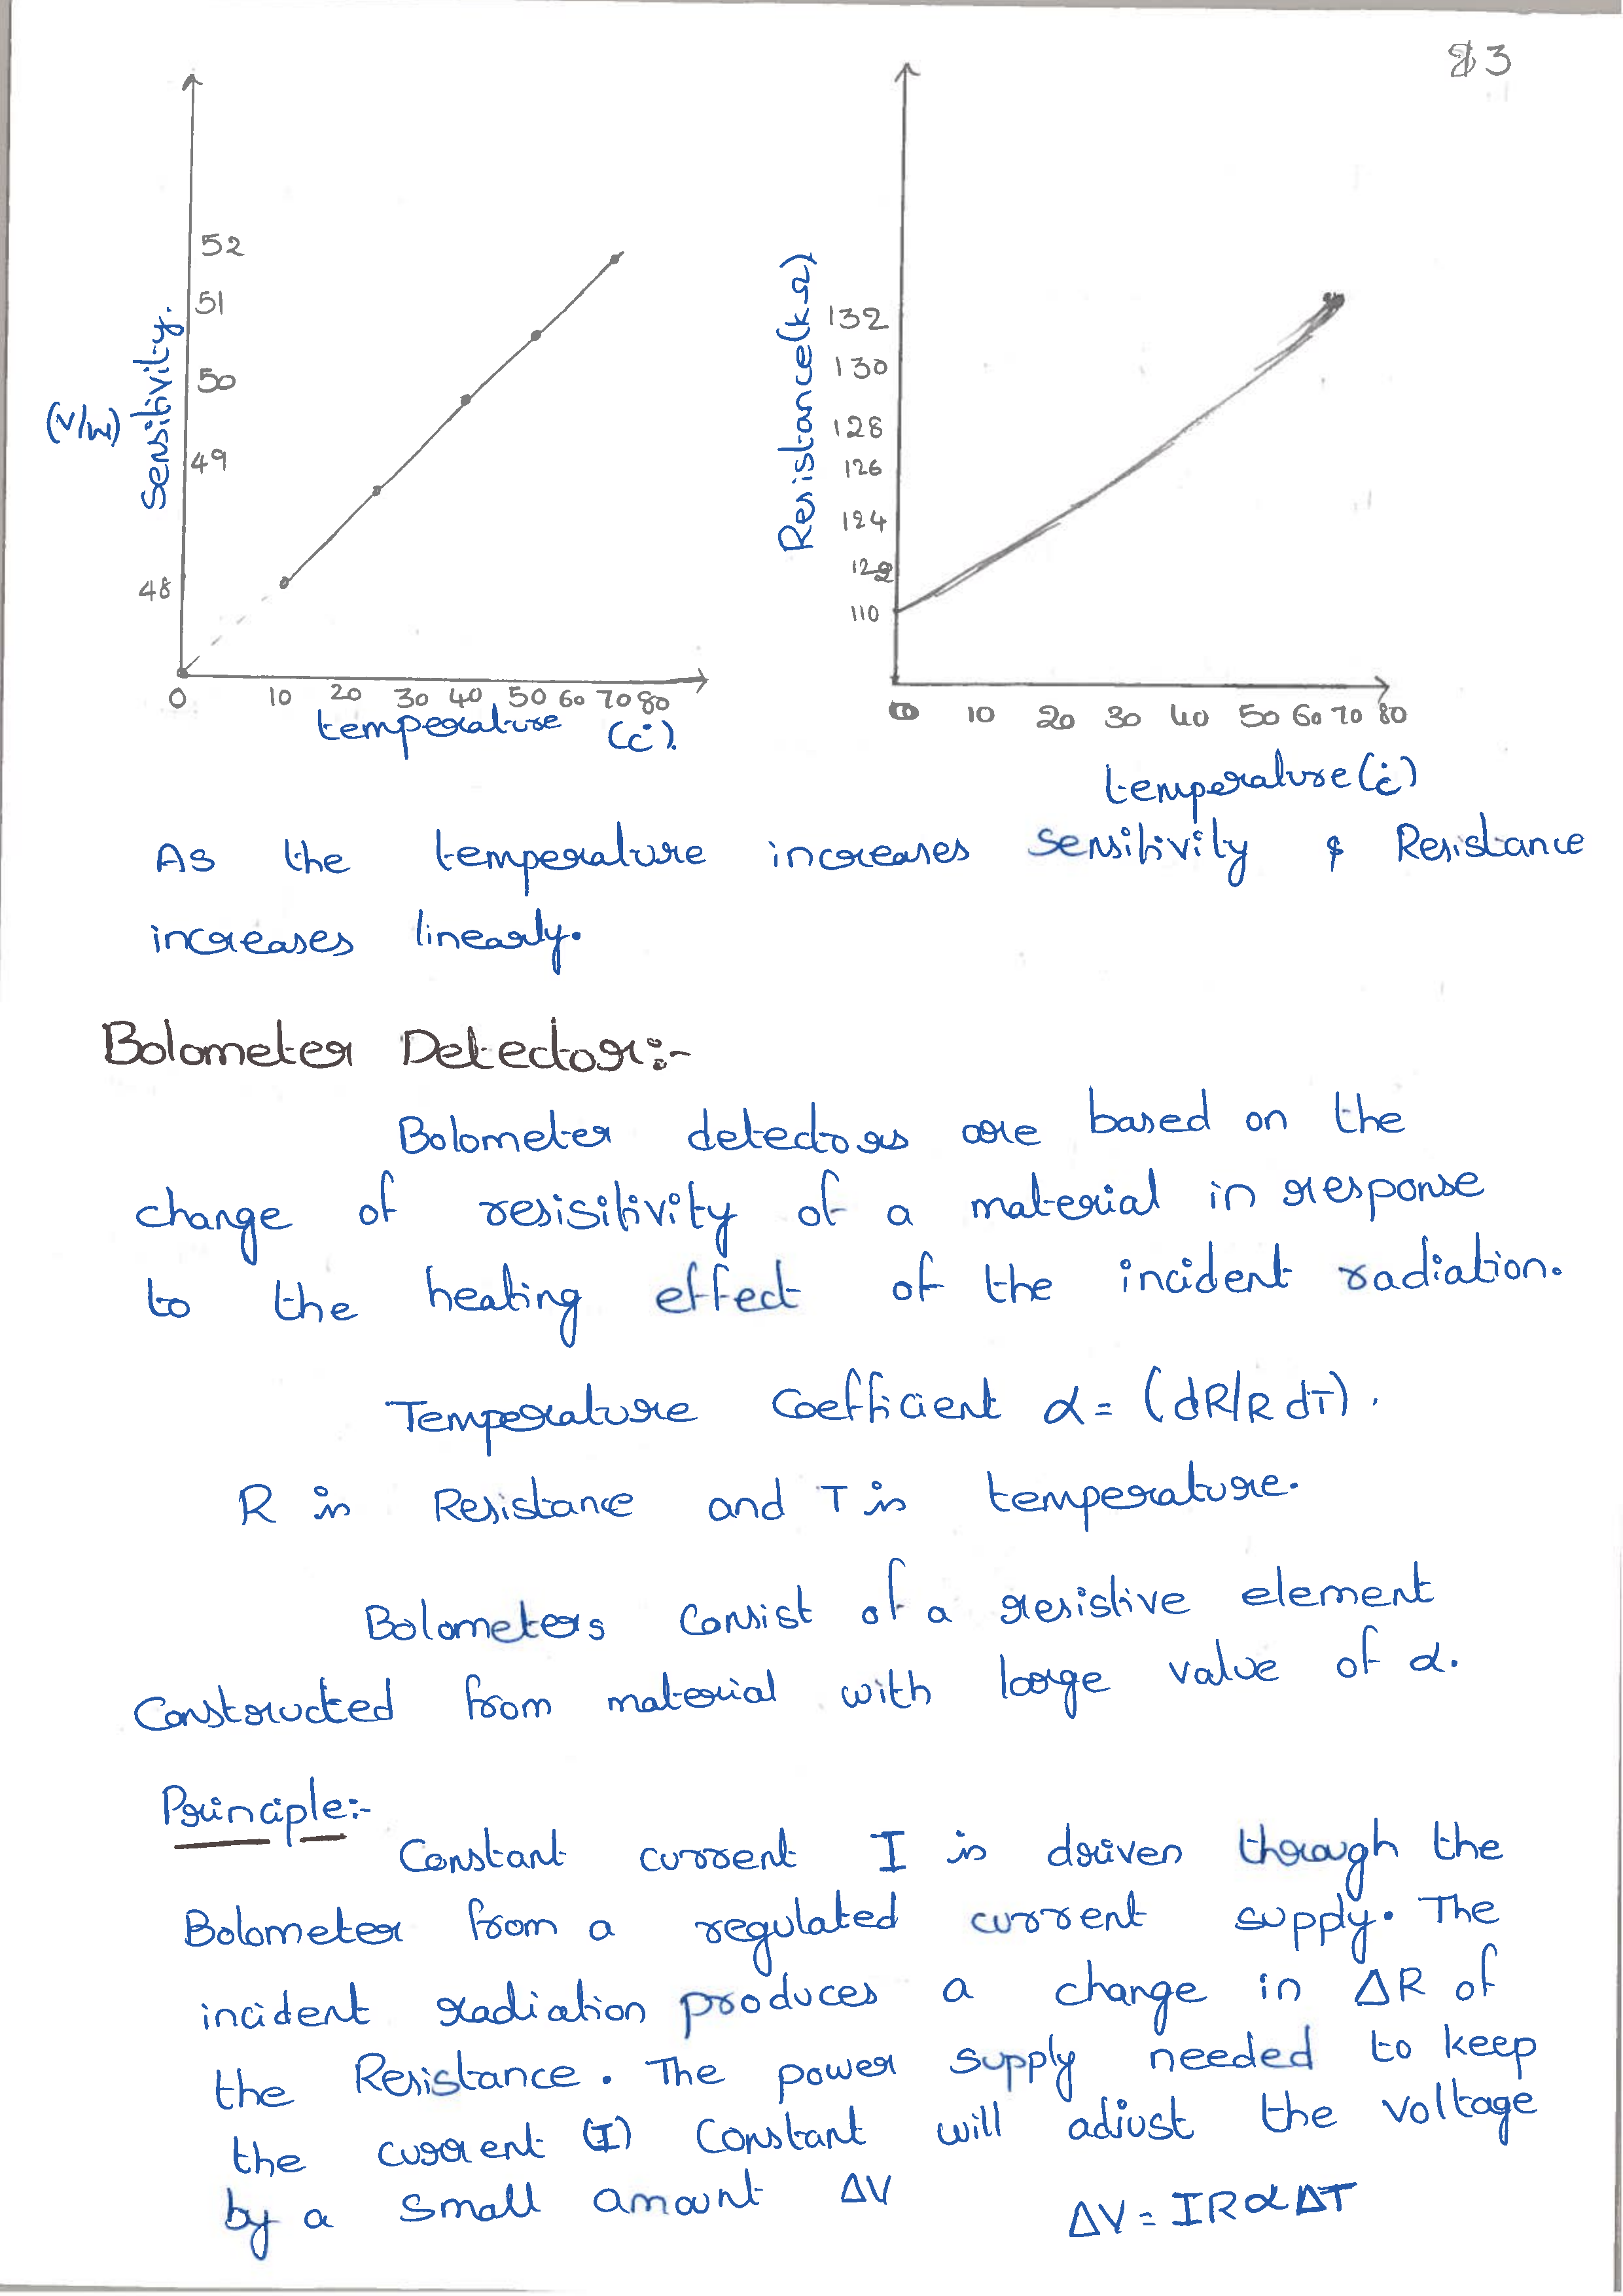 83
52
51
50
49
48
(V/W)
Sensitivity.
0 10 20 30 40 50 60 70 80
temperature (c).
Resistance (kΩ)
132
130
128
126
124
122
110
0 10 20 30 40 50 60 70 80
temperature (c)
As the temperature increases sensitivity & Resistance
increases linearly.
Bolometer Detector:-
Bolometer detectors are based on the
change of resisitivity of a material in response
to the heating effect of the incident radiation.
Temperature Coefficient α = (dR/R dT).
R is Resistance and T is temperature.
Bolometers consist of a resistive element
Constructed from material with large value of α.
Principle:-
Constant current I is driven through the
Bolometer from a regulated current supply. The
incident radiation produces a change in ΔR of
the Resistance. The power supply needed to keep
the current (I) Constant will adjust the voltage
by a small amount ΔV ΔV = IRαΔT